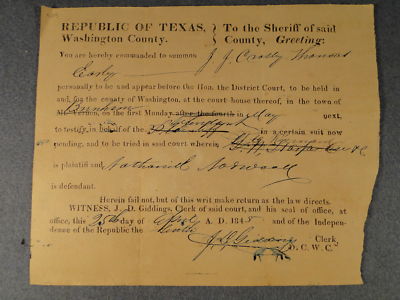 REPUBLIC OF TEXAS, } To the Sheriff of said
Washington County. } County, Greeting:
You are hereby commanded to summon J J Crosby Thomas
Early
personally to be and appear before the Hon. the District Court, to be held in
and for the county of Washington, at the court-house thereof, in the town of
Brenham
Mt Vernon, on the first Monday after the fourth in May next,
to testify, in behalf of the in a certain suit now
pending, and to be tried in said court wherein,
is plaintiff and Nathaniel Norwood
is defendant.
Herein fail not, but of this writ make return as the law directs.
WITNESS, J. D. Giddings, Clerk of said court, and his seal of office, at
office, this 25th day of April A. D. 1845 and of the Indepen-
dence of the Republic the Ninth
J. D. Giddings Clerk,
D. C. W. C.